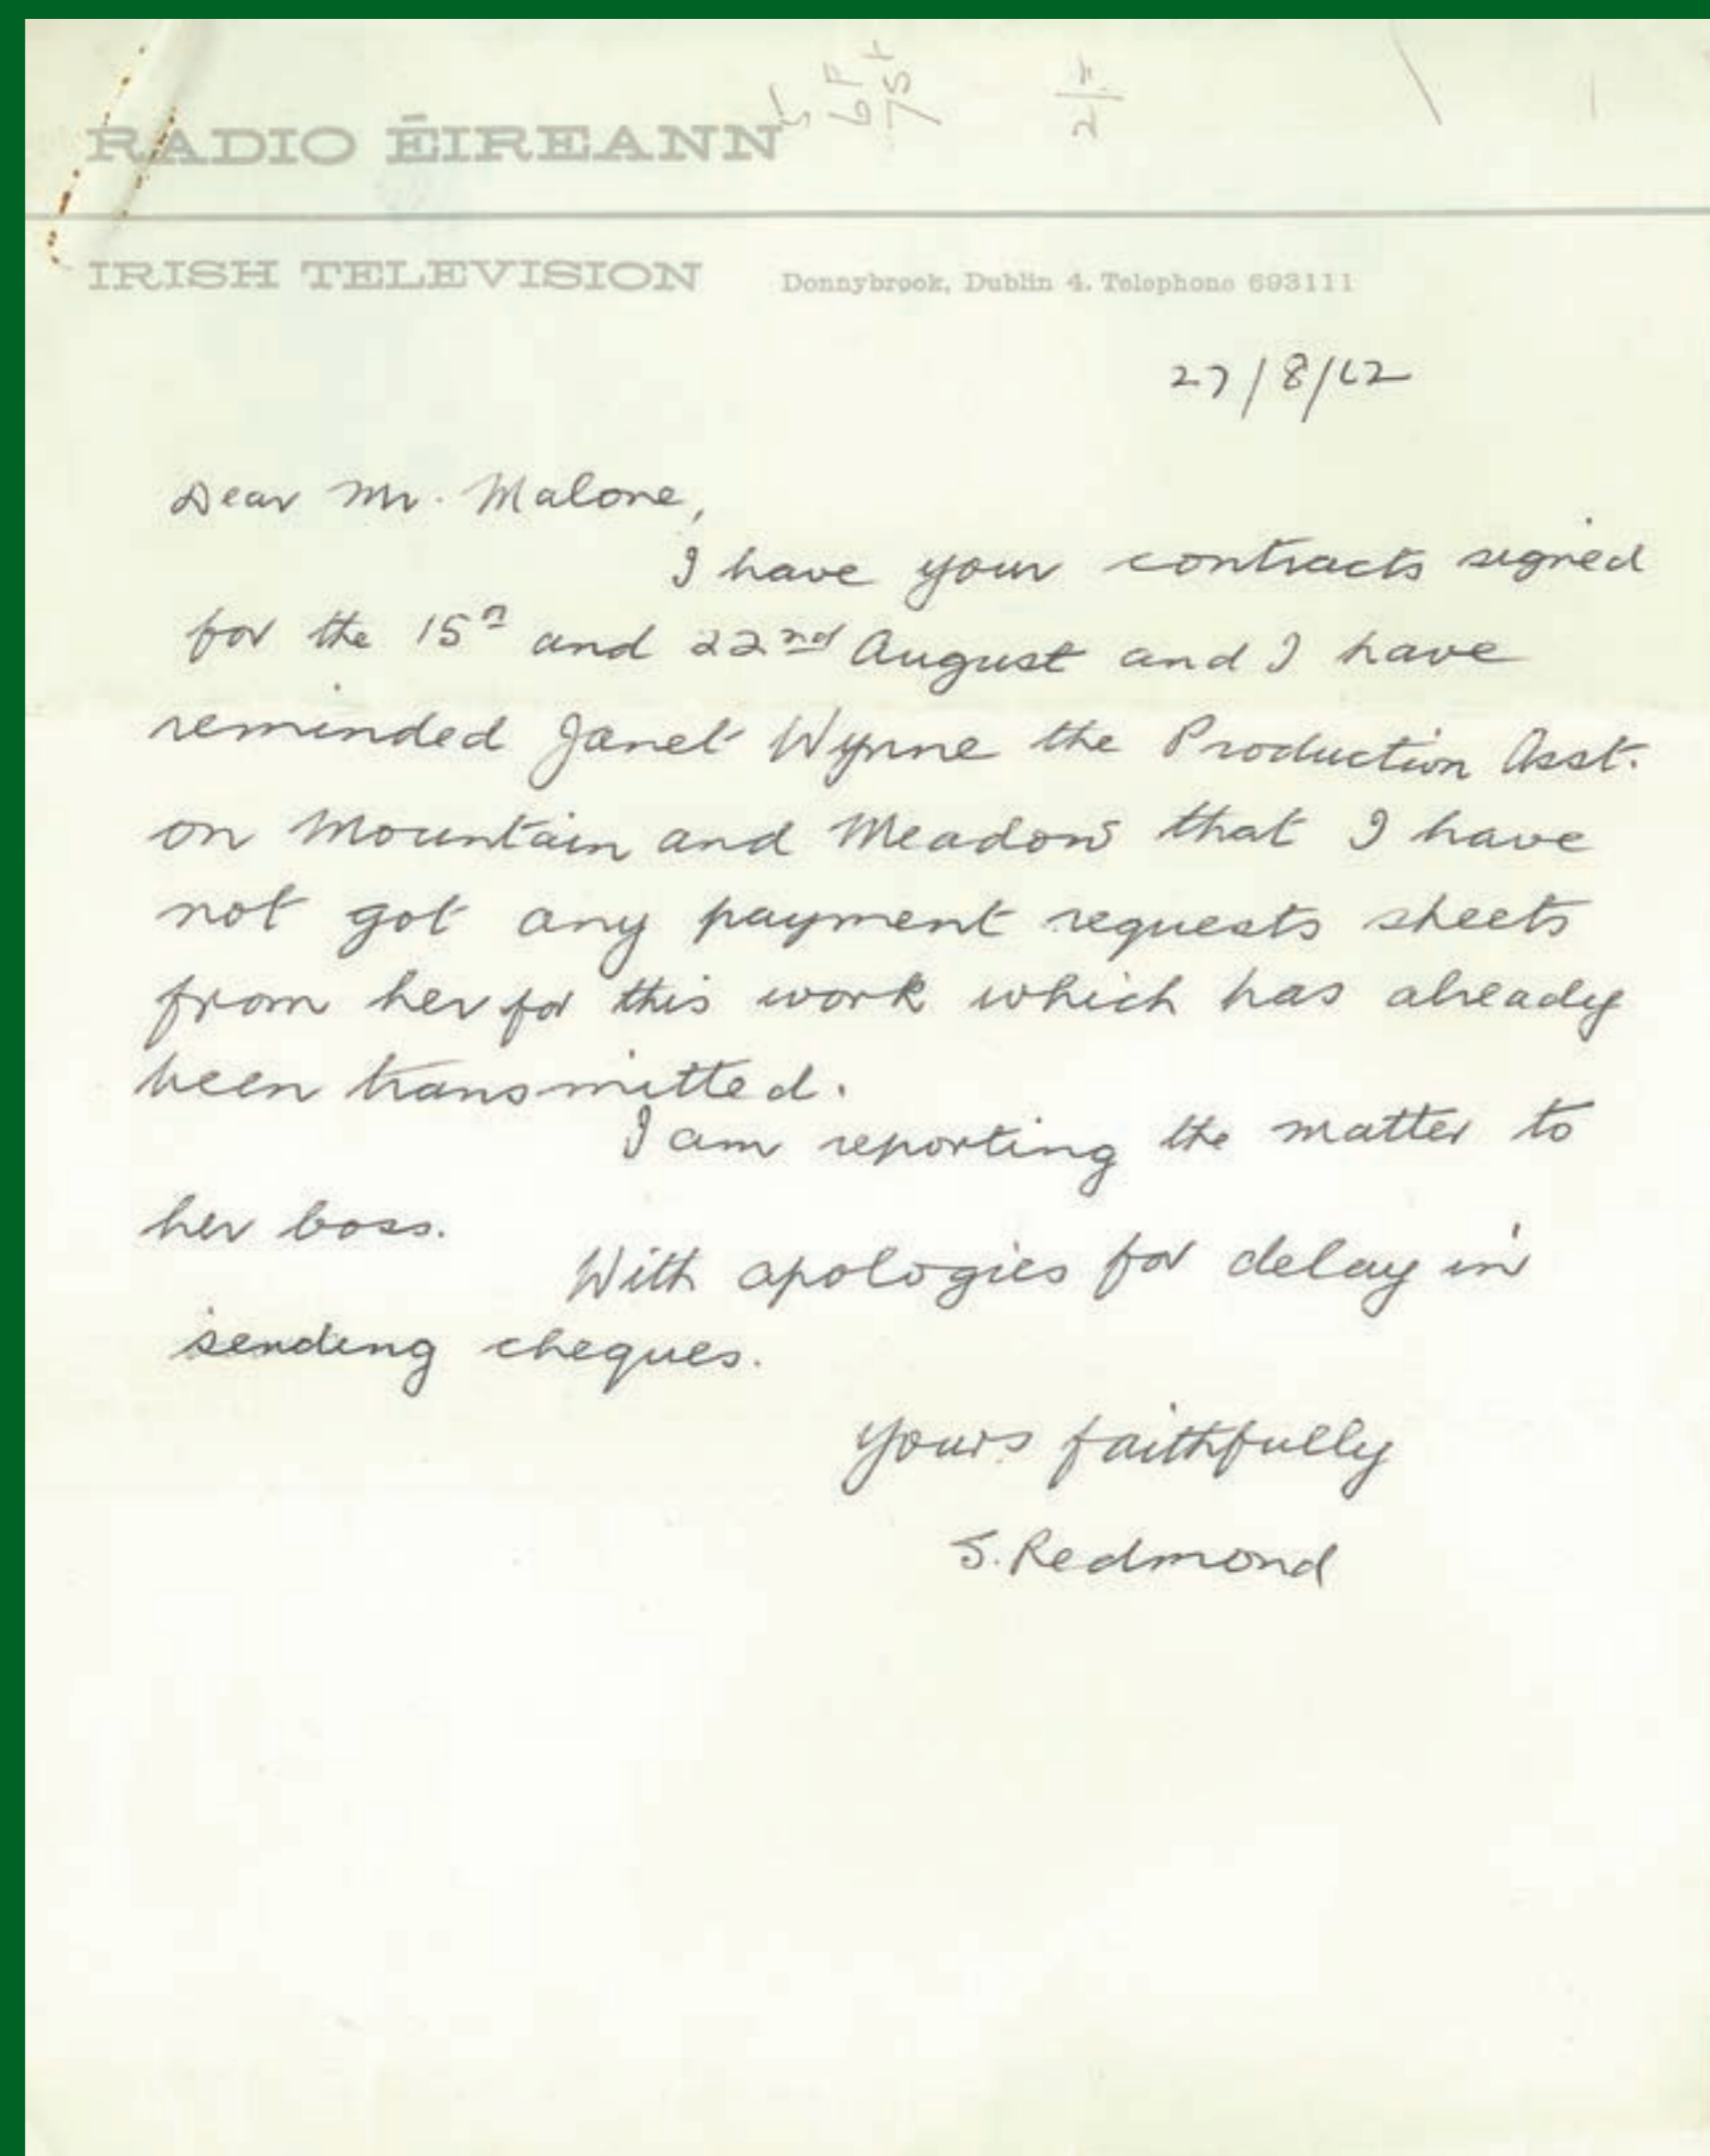 RADIO ÉIREANN
IRISH TELEVISION Donnybrook, Dublin 4. Telephone 693111
27/8/62
Dear Mr. Malone,
I have your contracts signed
for the 15th and 22nd August and I have
reminded Janet Wynne the Production Asst.
on Mountain and Meadow that I have
not got any payment requests sheets
from her for this work which has already
been transmitted.
I am reporting the matter to
her boss.
With apologies for delay in
sending cheques.
Yours faithfully
S. Redmond